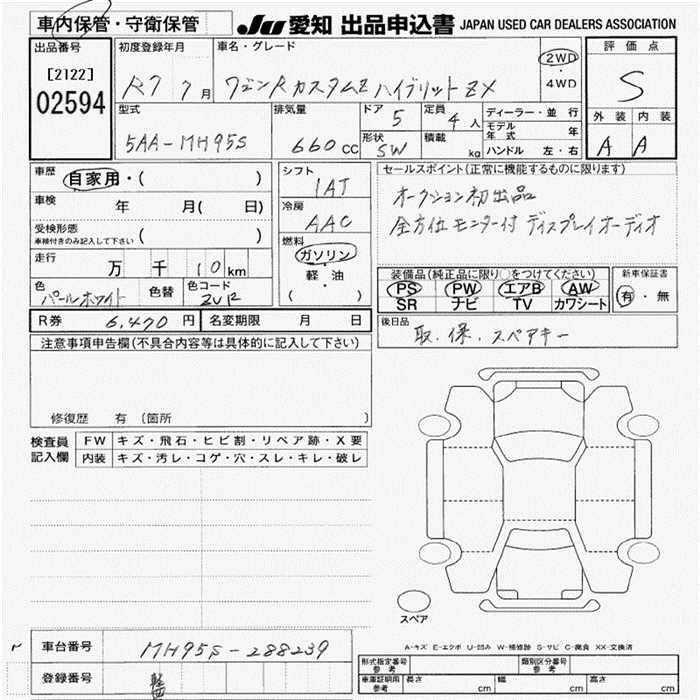 車内保管・守衛保管
JU 愛知 出品申込書 JAPAN USED CAR DEALERS ASSOCIATION
出品番号
[2122]
02594
初度登録年月
R7 7月
車名・グレード
ワゴンR カスタムZ ハイブリット ZX
2WD
・
4WD
評価点
S
外装 内装
A A
型式
5AA-MH95S
排気量
660 cc
ドア
5
定員
4 人
形状
SW
積載
kg
ディーラー・並行
モデル年式 年
ハンドル 左・右
車歴
自家用・( )
車検 年 月( 日)
受検形態
車検付きのみ記入して下さい ( )
走行 万 千 10 km
色
パールホワイト
色替
色コード
ZVR
シフト
IAT
冷房
AAC
燃料
ガソリン
軽・油
( )
セールスポイント(正常に機能するものに限ります)
オークション初出品
全方位モニター付 ディスプレイオーディオ
装備品(純正品に限り○をつけてください)
PS PW エアB AW
SR ナビ TV カワシート
新車保証書
有・無
R券 6,470 円 名変期限 月 日
後日品
取.保.スペアキー
注意事項申告欄(不具合内容等は具体的に記入して下さい)
修復歴 有(箇所 )
検査員記入欄
FW キズ・飛石・ヒビ割・リペア跡・X要
内装 キズ・汚レ・コゲ・穴・スレ・キレ・破レ
スペア
A-キズ E-エクボ U-凹み W-補修跡 S-サビ C-腐食 XX-交換済
車台番号 MH95S-288239
登録番号
形式指定番号 参考
類別区分番号 参考
車庫証明用 参考
長さ cm 幅 cm 高さ cm